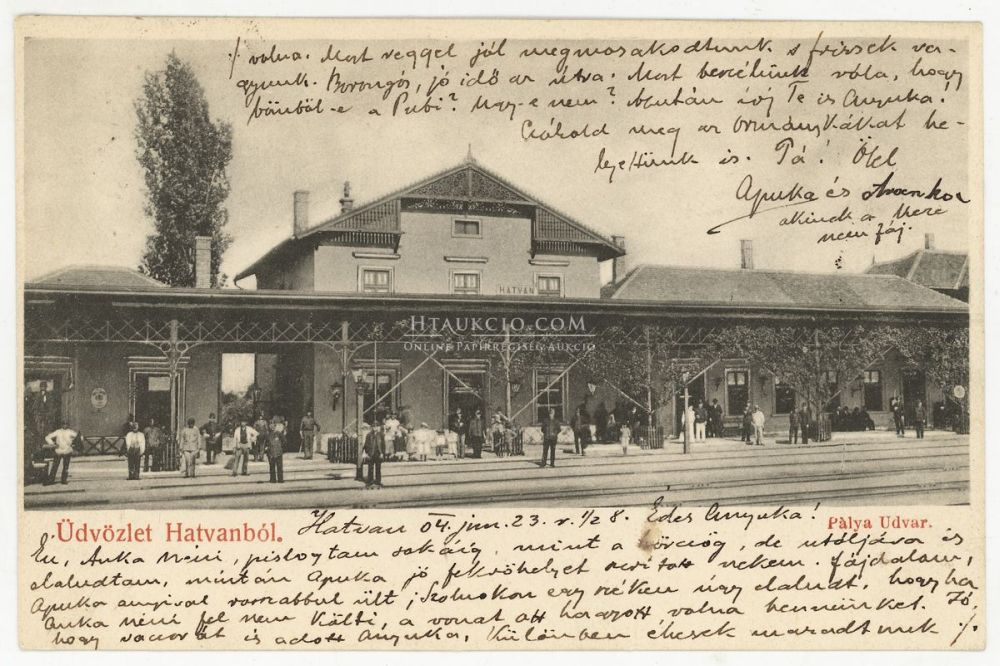 ·/. volna. Most reggel jól megmosakodtunk s frissek va-
gyunk. Borongós, jó idő az útra. Most beszélünk róla, hogy
bömböl-e a Pubi? Ugy-e nem? Azután írj Te is Anyuka!
Csókold meg az Ormánykákat he-
lyettünk is. Pá! Ölel
Apuka és Avanka
akinek a keze
nem fáj.
HATVAN
HTAUKCIO.COM
ONLINE PAPÍRRÉGISÉG AUKCIÓ
Üdvözlet Hatvanból.
Pàlya Udvar.
Hatvan 04. jun. 23. r. 1/2 8. Édes Anyuka!
Én, Anka néni, pislogtam sokáig, mint a görcsög, de utóljára is
elaludtam, miután Apuka jó fekvőhelyet készített nekem. Fájdalom,
Apuka annyival rosszabbul ült; Szolnokon egy széken úgy elaludt, hogy ha
Anka néni fel nem költi, a vonat ott hagyott volna bennünket. Jó,
hogy vacsorát is adott Anyuka, különben éhesek maradtunk ·/.